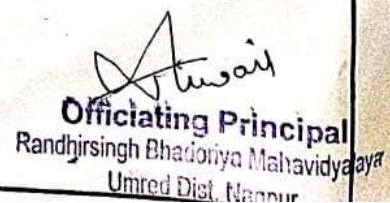 Officiating Principal
Randhirsingh Bhadoriya Mahavidyalayar
Umred Dist. Nagpur